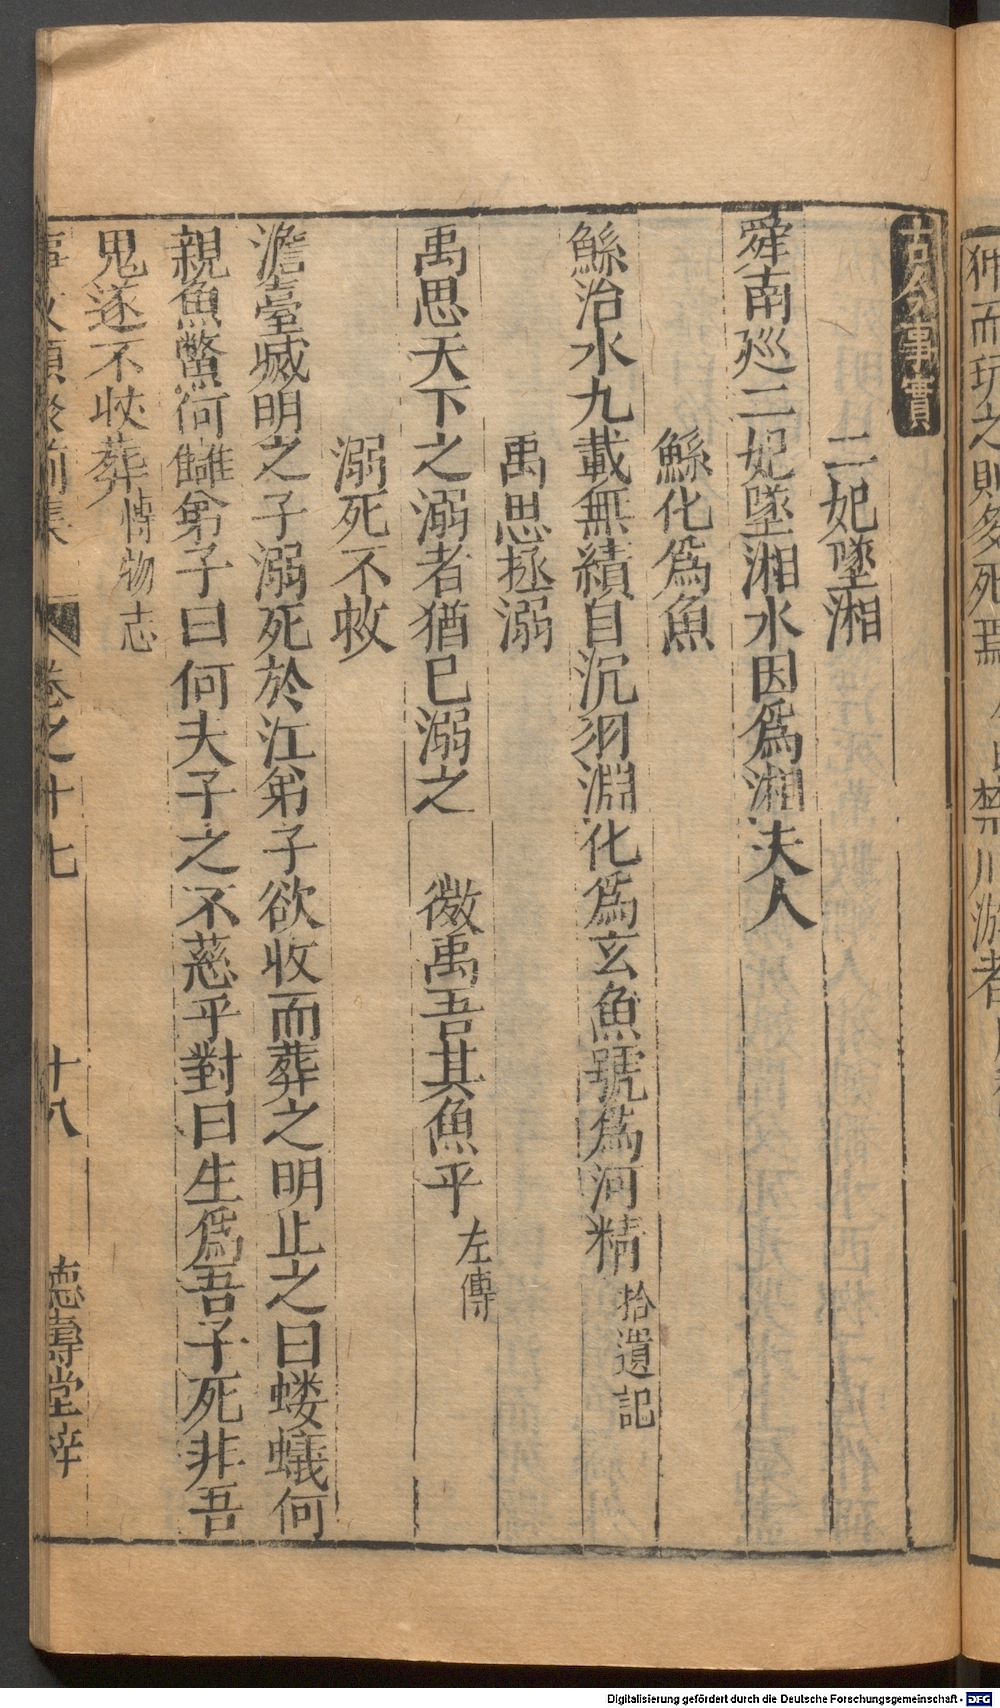 狎而玩之則多死焉
禁川游者
古今事實
二妃墜湘
舜南廵二妃墜湘水因爲湘夫人
鯀化爲魚
鯀治水九載無績自沉羽淵化爲玄魚號爲河精 拾遺記
禹思拯溺
禹思天下之溺者猶已溺之 微禹吾其魚乎 左傳
溺死不救
澹臺滅明之子溺死於江弟子欲收而葬之明止之曰螻蟻何
親魚鱉何讎弟子曰何夫子之不慈乎對曰生爲吾子死非吾
鬼遂不收葬 博物志
事文類聚前集 卷之十七 十八 德壽堂梓
Digitalisierung gefördert durch die Deutsche Forschungsgemeinschaft - DFG